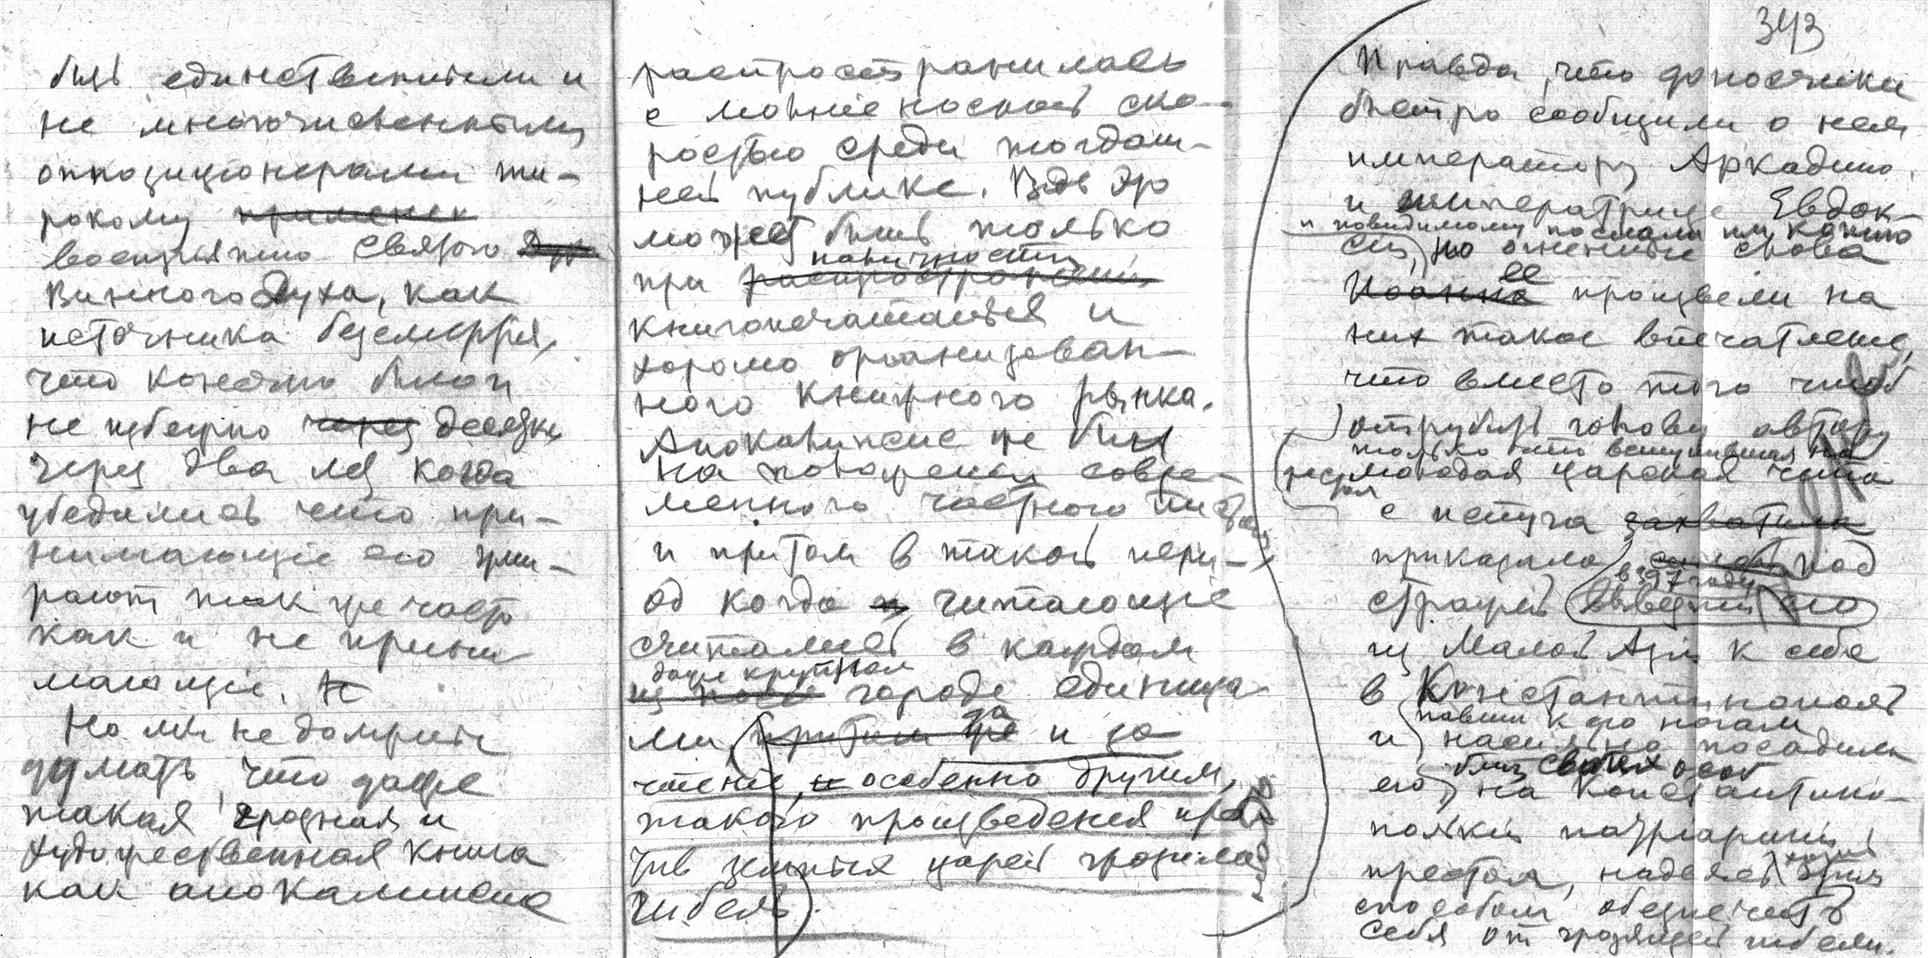 быть единственными и
не многочисленными
оппозиционерами ши-
рокому применен
восприятию святого Дух
Винного Духа, как
источника безсмертия,
что конечно было
не избежно через десять
через два лет когда
убедились что при-
нимающие его уми-
рают так же часто
как и не прини
мающие. Н
Но мы не должны
думать что даже
такая грозная и
художественная книга
как апокалипсис
распространилась
с молниеносной ско-
ростью среди тогдаш-
ней публики. Ведь это
может быть только
наличности
при распространении
книгопечатанья и
хорошо организован-
ного книжного рынка.
Апокалипсис же был
на положении совре-
менного частного письма
и притом в такой пери-
од когда читающие
считались в каждом
даже крупном
городе единица
ми притом же и за
чтение, и особенно другим,
такого произведения про
тив земных царей грозила
гибель.
343
Правда, что доносчики
быстро сообщили о нем
императору Аркадию
и императрице Евдок-
и повидимому послали им копию
сии, но огненные слова
ее
Иоанна произвели на
них такое впечатление,
что вместо того чтоб
отрубить голову автору
только что вступившая на
молодая царская чета
с испуга захватила
приказала под
в 397 году
стражей его
из Малой Азии к себе
в Константинополь
павши к его ногам
и насильно посадила
близ своей особ
его на Константино-
польский патриарший
престол, надеясь этим
способом обезпечить
себя от грозящей гибели.